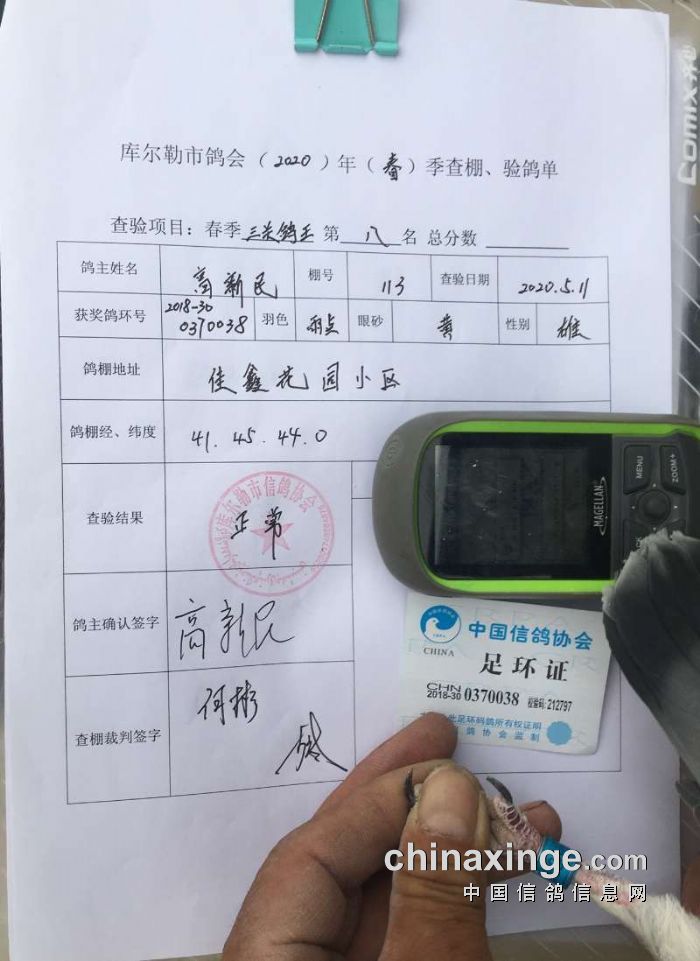 Comix 齐
库尔勒市鸽会（2020）年（春）季查棚、验鸽单
查验项目：春季三关鸽王 第 八 名 总分数
鸽主姓名 高新民 棚号 113 查验日期 2020.5.11
获奖鸽环号 2018-30 0370038 羽色 雨点 眼砂 黄 性别 雄
鸽棚地址 佳鑫花园小区
鸽棚经、纬度 41.45.44.0
查验结果 正常
库尔勒市信鸽协会
鸽主确认签字 高新民
查棚裁判签字 何彬
MAGELLAN
MENU
ZOOM+
中国信鸽协会
CHINA
足环证
CHN
2018-30 0370038 校验码: 212797
此足环码鸽所有权证明
信鸽协会监制
chinaxinge.com
中国信鸽信息网